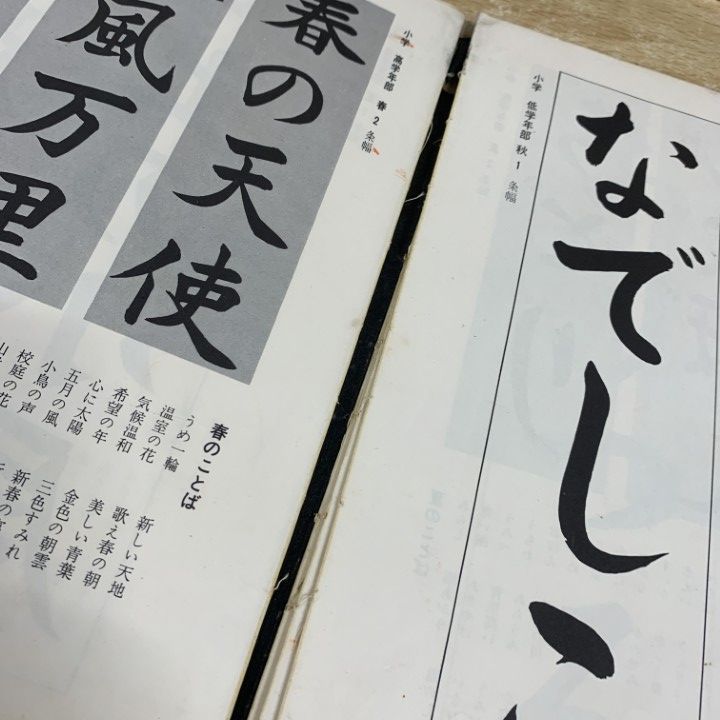 小学 低学年部 秋1 条幅
なでしこ
小学 高学年部 春2 条幅
春の天使
風万里
春のことば
うめ一輪
温室の花
気候温和
希望の年
心に太陽
五月の風
小鳥の声
校庭の花
新しい天地
歌え春の朝
美しい青葉
金色の朝雲
三色すみれ
新春の